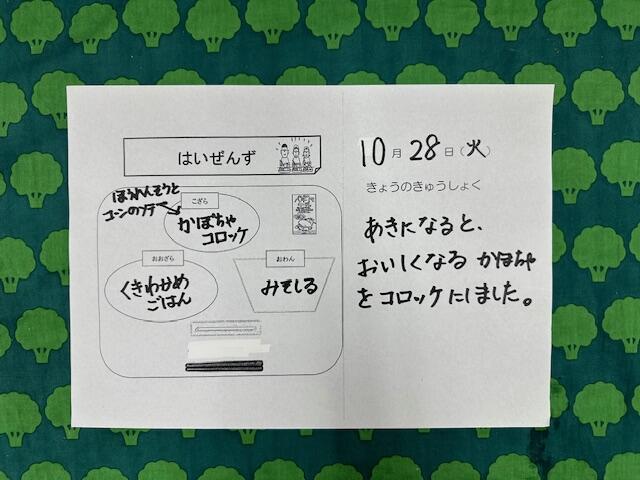 はいぜんず
ほうれんそうと
コーンのソテー
こざら
かぼちゃ
コロッケ
おおざら
くきわかめ
ごはん
おわん
みそしる
10月28日(火)
きょうのきゅうしょく
あきになると、
おいしくなるかぼちゃ
をコロッケにしました。